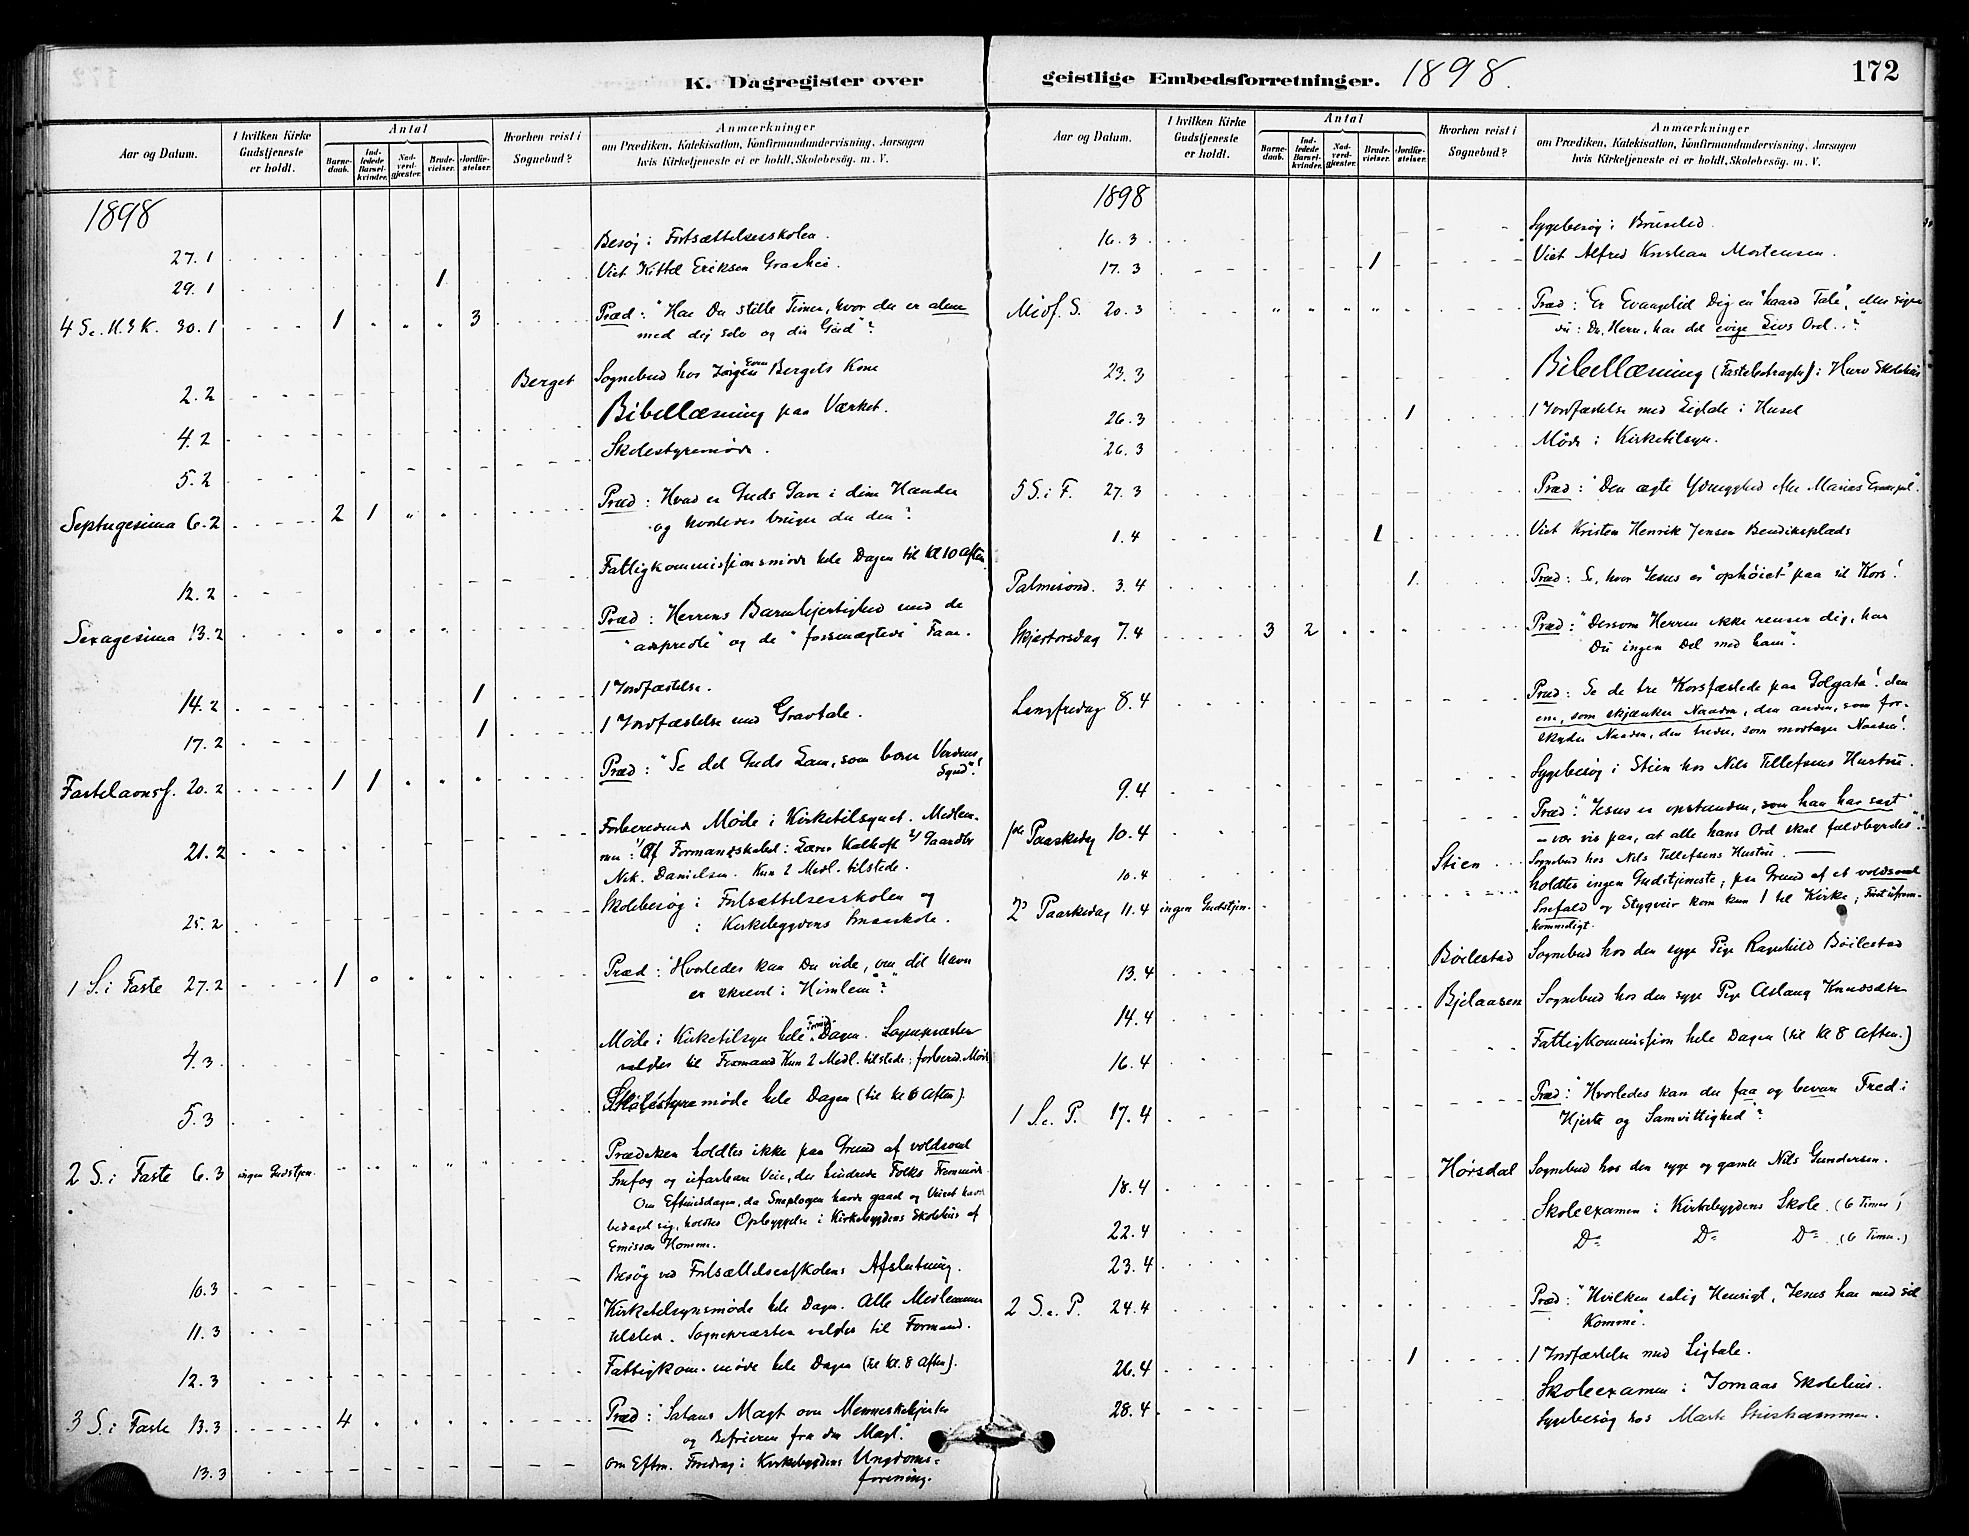 K. Dagregister over
geistlige Embedsforretninger. 1898.
172
Aar og Datum.
I hvilken Kirke Gudstjeneste er holdt.
Antal
Barnedaab.
Indledede Barselkvinder.
Nadverdgjæster.
Brudevielser.
Jordfæstelser.
Hvorhen reist i Sognebud?
Anmærkninger
om Prædiken, Katekisation, Konfirmandundervisning, Aarsagen
hvis Kirketjeneste ei er holdt, Skolebesøg, m. V.
1898
27.1 Besøg i Fortsættelsesskolen.
29.1 1 Viet Kittel Eriksen Graahei.
4 S. e. H. 3 K. 30.1 1 3 Præd: "Har Du stille Timer, hvor du er alene
med dig selv og din Gud"?
2.2 Berget Sognebud hos Bergets Kone
4.2 Bibellæsning paa Værket.
5.2 Skolestyremøde.
Septugesima 6.2 2 1 Præd: Hvad er Guds Gave i dine Hænder
og hvorledes bruger du den?
12.2 Fattigkommissionsmøde hele Dagen til kl 10 Aften
Sexagesima 13.2 Præd: Herrens Barmhjertighed med de
"adspredte" og de "forsmægtede" Faar.
14.2 1 1 Jordfæstelse.
17.2 1 1 Jordfæstelse med Gravtale.
Fastelavnsf. 20.2 1 1 Præd: "Se det Guds Lam, som bærer Verdens
Synd"!
21.2 Forberedende Møde i Kirketilsynet. Medlem-
mer: Af Formandskabet: Lærer Kalhoft Gaardbr
Nik. Danielsen. Kun 2 Medl. tilstede.
25.2 Skolebesøg i Fortsættelsesskolen og
i Kirkebygdens Smaaskole.
1 S. i Faste 27.2 1 Præd: "Hvorledes kan Du vide, om dit Navn
er skrevet i Himlen"?
4.3 Møde i Kirketilsyn hele Dagen. Sognepræsten
valdes til Formand Kun 2 Medl. tilstede: forbered. Møde
5.3 Skolestyremøde hele Dagen (til kl 6 Aften).
2 S. i Faste 6.3 ingen Gudstjen. Prædiken holdtes ikke paa Grund af voldsomt
Snefog og ufarbare Veie, der hindrede Folks Fremmøde
Om Eftmiddagen, da Sneplogen havde gaaet og Veiret havde
bedaget sig, holdtes Opbyggelse i Kirkebygdens Skolehus af
Emissær Homme.
10.3 Besøg ved Fortsættelsesskolens Afslutning.
11.3 Kirketilsynsmøde hele Dagen. Alle Medlemmer
tilsted. Sognepræsten valdes til Formand.
12.3 Fattigkom. møde hele Dagen (til kl. 8 Aften).
3 S. i Faste 13.3 4 Præd: "Satans Magt over Menneskehjertet
og Befrieren fra den Magt."
13.3 Om Eftm. Foredrag i Kirkebygdens Ungdoms-
forening.
Aar og Datum.
I hvilken Kirke Gudstjeneste er holdt.
Antal
Barnedaab.
Indledede Barselkvinder.
Nadverdgjæster.
Brudevielser.
Jordfæstelser.
Hvorhen reist i Sognebud?
Anmærkninger
om Prædiken, Katekisation, Konfirmandundervisning, Aarsagen
hvis Kirketjeneste ei er holdt, Skolebesøg, m. V.
1898
16.3 Sygebesøg i
17.3 1 Viet Alfred Kristian Mortensen.
Midf. S. 20.3 Præd: "Er Evangeliet Dig en "haard Tale", eller siger
du: Du, Herre, har det evige Livs Ord..?"
23.3 Bibellæsning (Fastebetragtn.) i Skolehus
26.3 1 1 Jordfæstelse med Ligtale i Huset
26.3 Møde i Kirketilsyn.
5 S. i F. 27.3 Præd: "Den ægte Ydmyghed efter Marias Exempel".
1.4 1 Viet Kristen Henrik Jensen Bendiksplads
Palmesønd. 3.4 1. Præd: Se, hvor Jesus er "ophøiet" paa sit Kors!
Skjærtorsdag 7.4 3 2 Præd: "Dersom Herren ikke renser dig, har
Du ingen Del med ham".
Langfredag 8.4 Præd: Se de tre Korsfæstede paa Golgata! den
ene, som skjænker Naaden, den anden, som for-
skyder Naaden, den tredie, som modtager Naaden!
9.4 Sygebesøg i Stien hos Nils Tellefsens Hustru.
1ste Paaskedag 10.4 Præd: "Jesus er opstanden, som han har sagt"
- vær vis paa, at alle hans Ord skal fuldbyrdes"!
10.4 Stien Sognebud hos Nils Tellefsens Hustru.
2den Paaskedag 11.4 ingen Gudstjen. holdtes ingen Gudstjeneste; paa Grund af et voldsomt
Snefald og Stygveir kom kun 1 til Kirke;
13.4 Bøilestad Sognebud hos den syge Pige Ragnhild Bøilestad
14.4 Bjelaasen Sognebud hos den syge Pige Aslaug
16.4 Fattigkommission hele Dagen (til kl 8 Aften.)
1 S. e. P. 17.4 Præd: "Hvorledes kan du faa og bevare Fred i
Hjerte og Samvittighed"?
18.4 Hørsdal Sognebud hos den syge og gamle Nils Gundersen.
22.4 Skoleexamen i Kirkebygdens Skole. (6 Timer)
23.4 Do Do Do (6 Timer.)
2 S. e. P. 24.4 Præd: "Hvilken salig Hensigt, Jesus har med sit
Komme".
26.4 1 1 Jordfæstelse med Ligtale.
28.4 Skoleexamen i Jomaas Skolehus.
Sygebesøg hos Marte